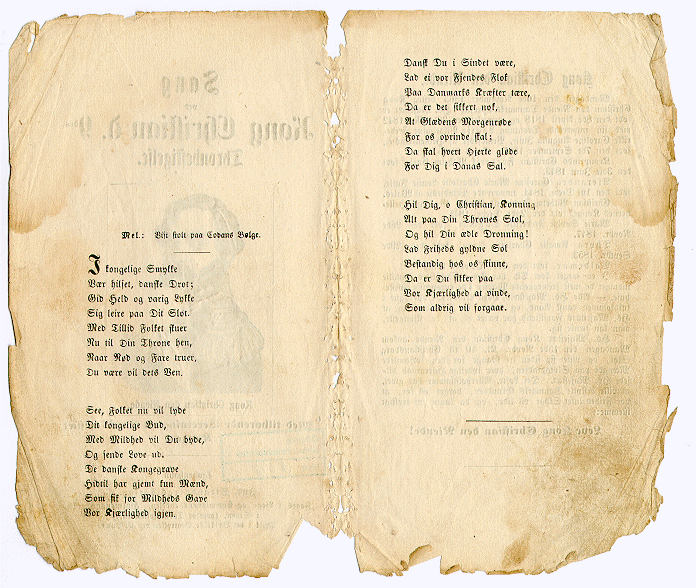 Mel.: Vift stolt paa Codans Bølge.
I kongelige Smykke
Vær hilset, danske Drot;
Gid Held og varig Lykke
Sig leire paa Dit Slot.
Med Tillid Folket skuer
Nu til Din Throne hen,
Naar Nød og Fare truer,
Du være vil dets Ven.
See, Folket nu vil lyde
Dit kongelige Bud,
Med Mildhed vil Du byde,
Og sende Love ud.
De danske Kongegrave
Hidtil har gjemt kun Mænd,
Som fik for Mildheds Gave
Vor Kjærlighed igjen.
Dansk Du i Sindet være,
Lad ei vor Fjendes Flok
Paa Danmarks Kræfter tære,
Da er det sikkert nok,
At Glædens Morgenrøde
For os oprinde skal;
Da skal hvert Hjerte gløde
For Dig i Danas Sal.
Hil Dig, o Christian, Konning
Alt paa Din Thrones Stol,
Og hil Din ædle Dronning!
Lad Friheds gyldne Sol
Bestandig hos os skinne,
Da er Du sikker paa
Vor Kjærlighed at vinde,
Som aldrig vil forgaae.